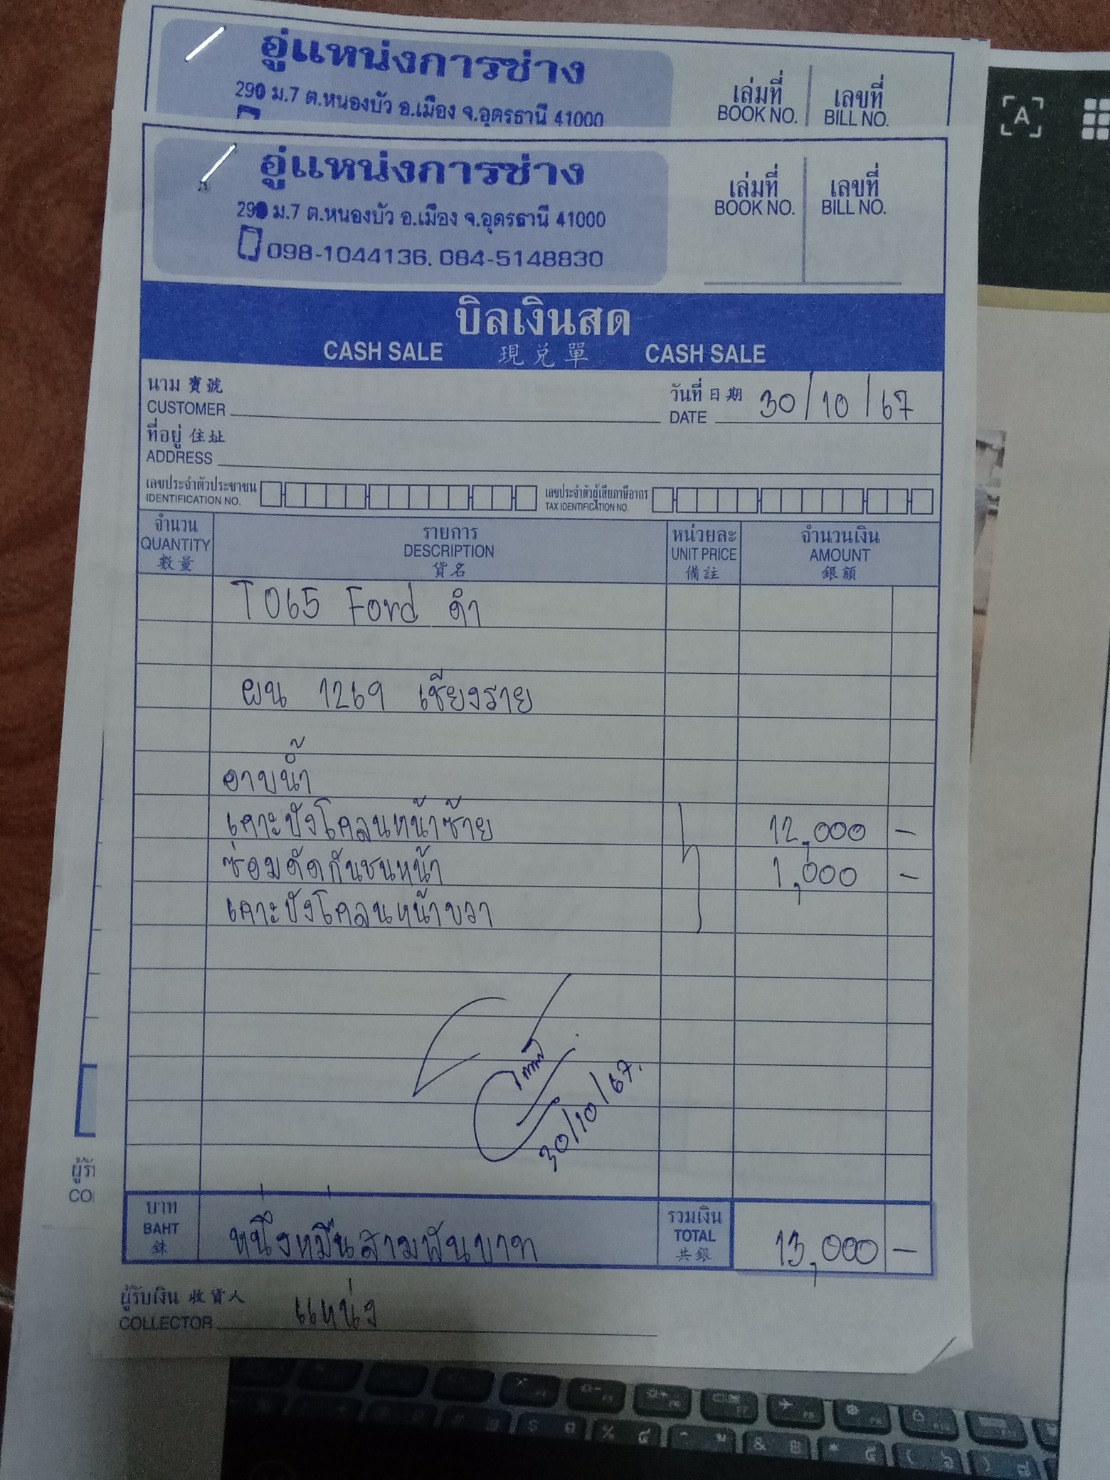 อู่แหน่งการช่าง
290 ม.7 ต.หนองบัว อ.เมือง จ.อุดรธานี 41000
เล่มที่ เลขที่
BOOK NO. BILL NO.
A
อู่แหน่งการช่าง
290 ม.7 ต.หนองบัว อ.เมือง จ.อุดรธานี 41000
098-1044136, 084-5148830
เล่มที่ เลขที่
BOOK NO. BILL NO.
บิลเงินสด
CASH SALE 現兑單 CASH SALE
นาม 寶號
CUSTOMER
วันที่ 日期
DATE 30/10/67
ที่อยู่ 住址
ADDRESS
เลขประจำตัวประชาชน
IDENTIFICATION NO.
เลขประจำตัวผู้เสียภาษีอากร
TAX IDENTIFICATION NO.
จำนวน รายการ หน่วยละ จำนวนเงิน
QUANTITY DESCRIPTION UNIT PRICE AMOUNT
數量 貨名 備註 銀額
T065 Ford ดำ
ผน 1269 เชียงราย
อาบน้ำ
เคาะบังโคลนหน้าซ้าย 12,000 -
ซ่อมดัดกันชนหน้า 1,000 -
เคาะบังโคลนหน้าขวา
30/10/67.
บาท
BAHT
銖
หนึ่งหมื่นสามพันบาท
รวมเงิน
TOTAL
共銀
13,000 -
ผู้รับเงิน 收貨人
COLLECTOR แหน่ง